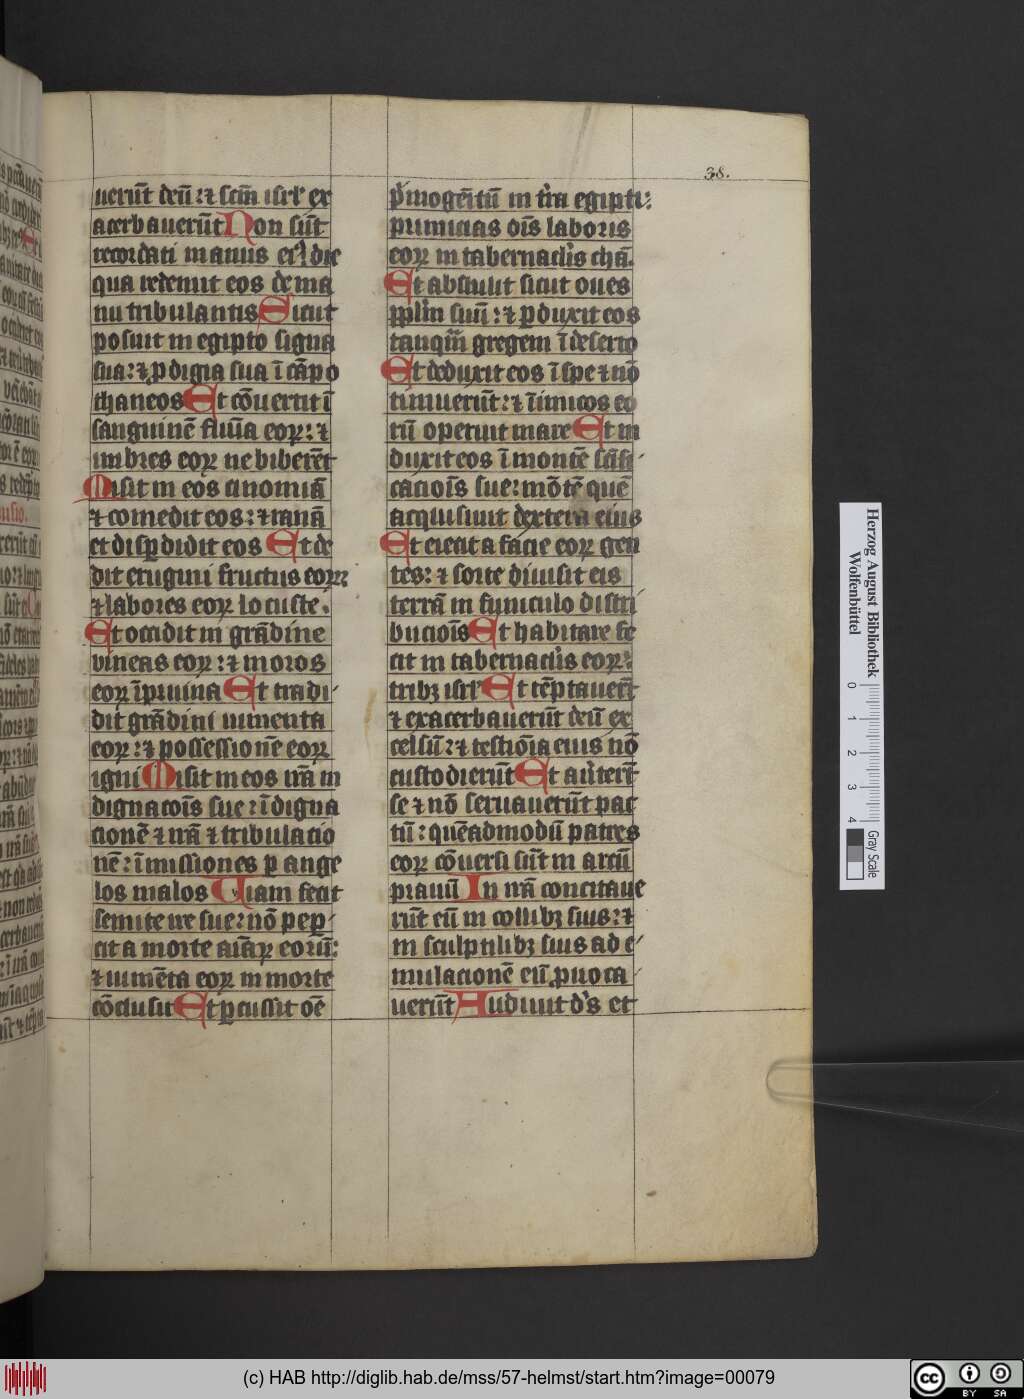 38.
uerūt deū: ⁊ scm̄ isrl' ex
acerbauerūt Non sūt
recordati manus ei9 die
qua redemit eos de ma
nu tribulantis Sicut
posuit in egipto signa
sua: ⁊ ꝓdigia sua ī cāpo
thaneos Et cōuertit ī
sanguinē fluīa eoꝝ: ⁊
imbres eoꝝ ne biberēt
Misit in eos cinomiā
⁊ comedit eos: ⁊ ranā
et disꝑdidit eos Et de
dit erugini fructus eoꝝ:
⁊ labores eoꝝ locuste.
Et occidit in grādine
vineas eoꝝ: ⁊ moros
eoꝝ ī pruina Et tradi
dit grādini iumenta
eoꝝ: ⁊ possessionē eoꝝ
igni Misit in eos irā in
dignacōis sue: īdigna
cionē ⁊ irā ⁊ tribulacio
nē: īmissiones ꝑ ange
los malos Uiam fecit
semite ire sue: nō peꝑ
cit a morte aīaꝝ eorū:
⁊ iumēta eoꝝ in morte
cōclusit Et ꝑcussit oē
p̄mogeītū in tr̄a egipti:
primicias oīs laboris
eoꝝ in tabernacl'is chā.
Et abstulit sicut oues
ppl'm suū: ⁊ ꝑduxit eos
tanqm̄ gregem ī deserto
Et deduxit eos ī spe ⁊ nō
timuerūt: ⁊ īimicos eo
rū operuit mare Et in
duxit eos ī montē sc̄īfi
cacioīs sue: mōtē quē
acquisiuit dextera eius
Et eiecit a facie eoꝝ gen
tes: ⁊ sorte diuisit eis
terrā in funiculo distri
bucioīs Et habitare fe
cit in tabernacl'is eoꝝ:
tribꝫ isrl' Et tēptauerūt
⁊ exacerbauerūt deū ex
celsū: ⁊ testiōīa eius nō
custodierūt Et au'terūt
se ⁊ nō seruauerūt pac
tū: quēadmodū patres
eoꝝ cōuersi sūt in arcū
prauū In irā concitaue
rūt eū in collibꝫ suis: ⁊
in sculptilibꝫ suis ad e
mulacionē eū ꝓuoca
uerūt Audiuit d's et
Herzog August Bibliothek
Wolfenbüttel
0 1 2 3 4
Gray Scale
(c) HAB http://diglib.hab.de/mss/57-helmst/start.htm?image=00079
cc BY SA